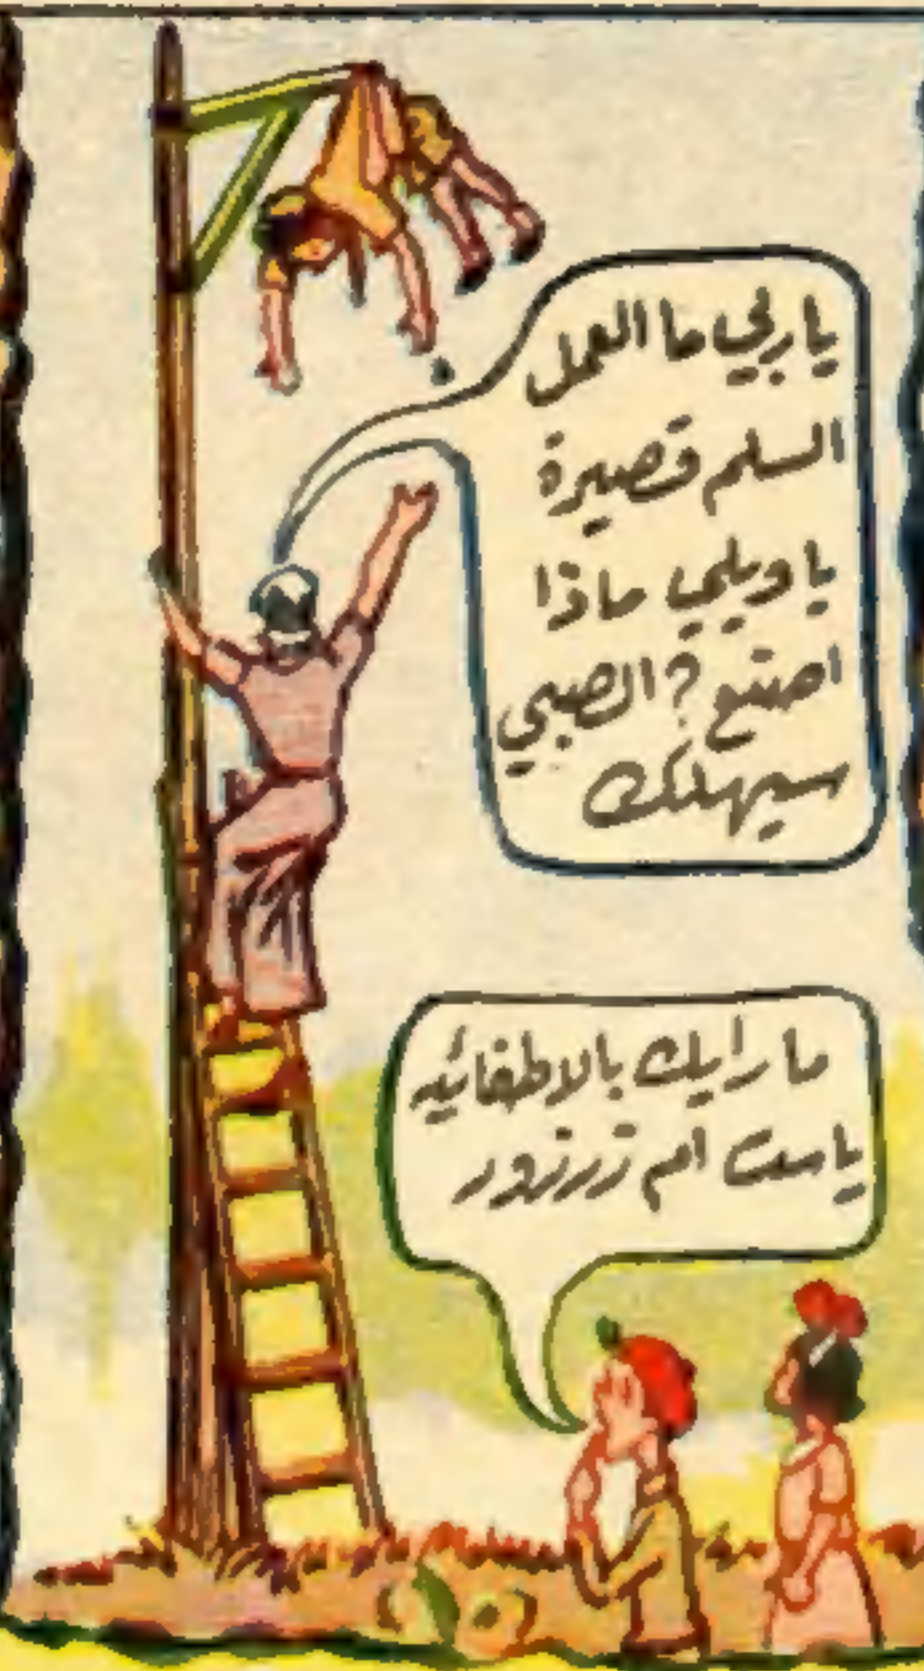 ياربي ما العمل
السلم قصيرة
ياويلي ماذا
اصنع ؟ الصبي
سيهلك
ما رأيك بالاطفائيه
ياست ام زرزور